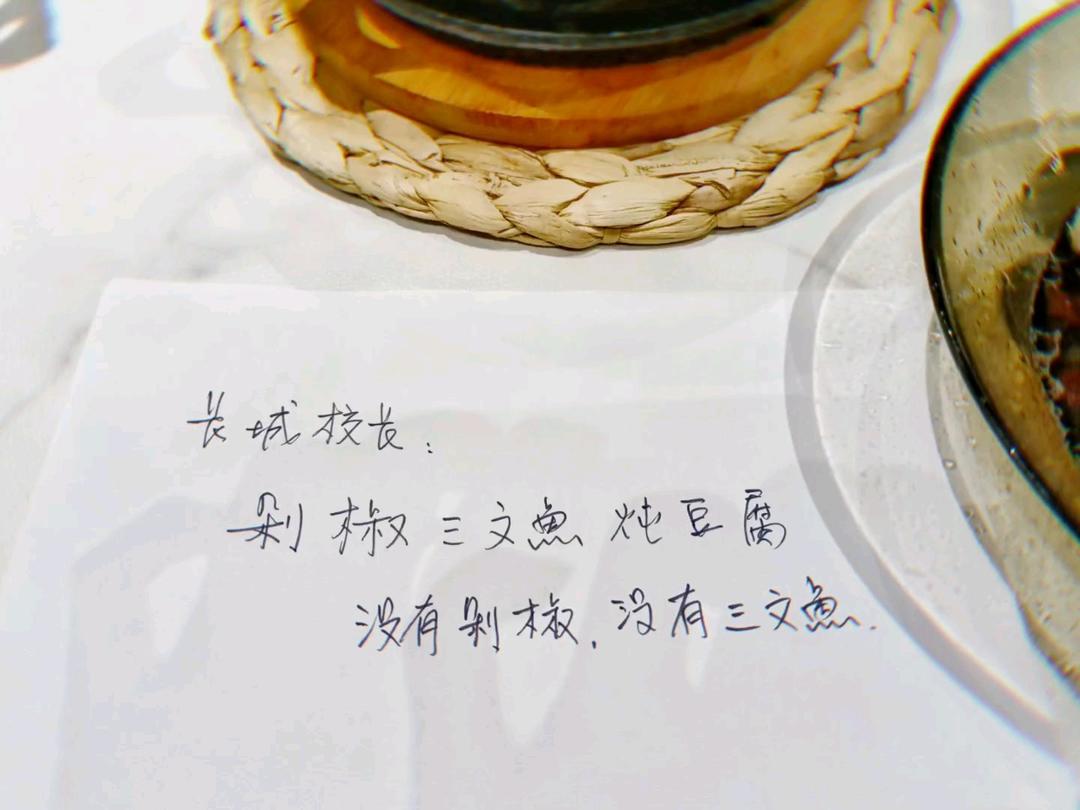 长城校长:
剁椒三文魚炖豆腐
没有剁椒.没有三文魚.